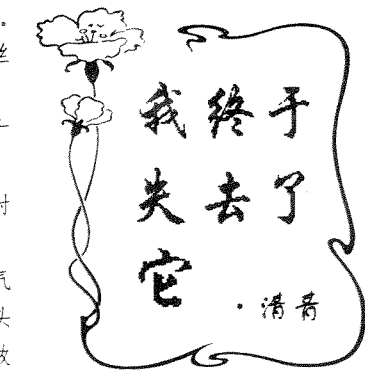 我终于
失去了
它
·清青